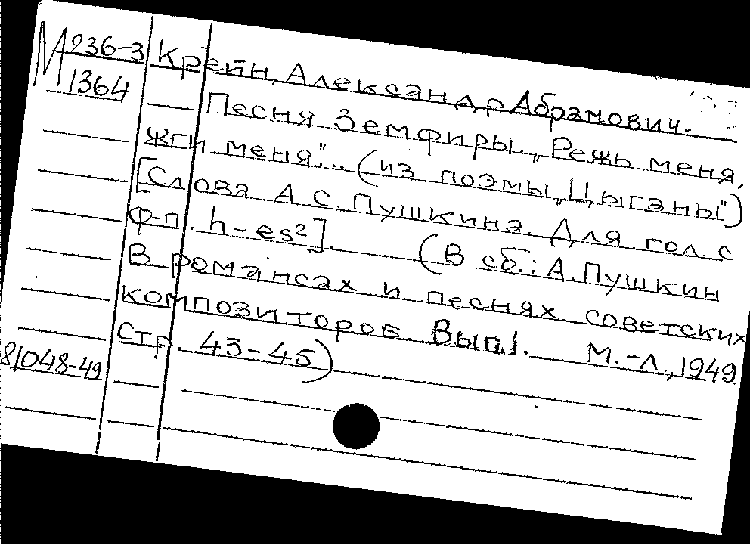 М 236-3 Крейн, Александр Абрамович.
1364 — Песня Земфиры „Режь меня,
жги меня"... (из поэмы „Цыганы")
[Слова А.С. Пушкина. Для гол. с
ф-п. h-es²]. (В сб.: А. Пушкин
в романсах и песнях советских
композиторов. Вып. 1. М.-Л., 1949.
Стр. 43-45)
81048-49